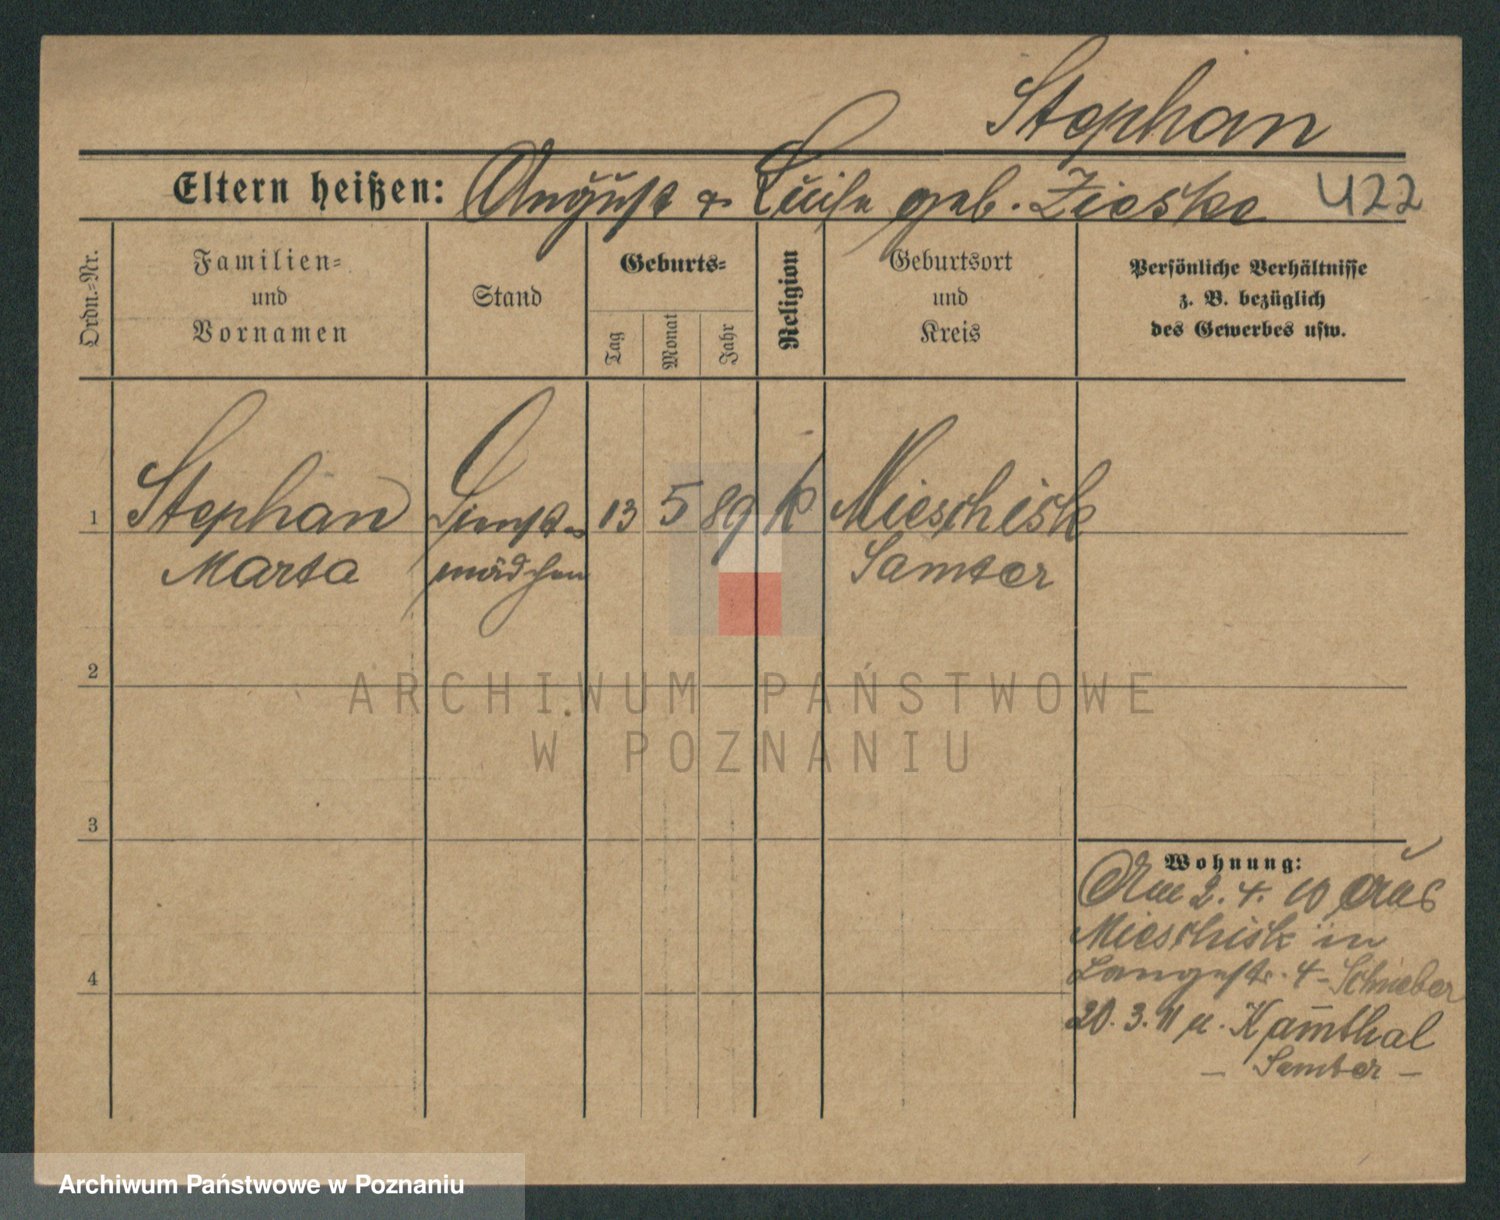 Stephan
Eltern heißen: August & Luise geb. Zieske 422
Ordn.-Nr.
Familien-
und
Vornamen
Stand
Geburts-
Tag
Monat
Jahr
Religion
Geburtsort
und
Kreis
Persönliche Verhältnisse
z. B. bezüglich
des Gewerbes usw.
1 Stephan Dienst- 13 5 89 k Mieschisk
Marta mädchen Samter
2
3
4
Wohnung:
Am 2. 4. 10 aus
Mieschisk in
Langestr. 4 - Schieber
20. 3. 11 n. Kamthal
- Samter -
ARCHIWUM PAŃSTWOWE
W POZNANIU
Archiwum Państwowe w Poznaniu